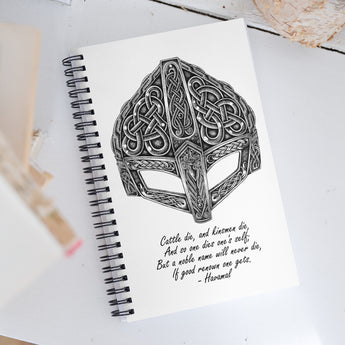 Cattle die, and kinsmen die,
And so one dies one's self;
But a noble name will never die,
If good renown one gets.
- Havamal